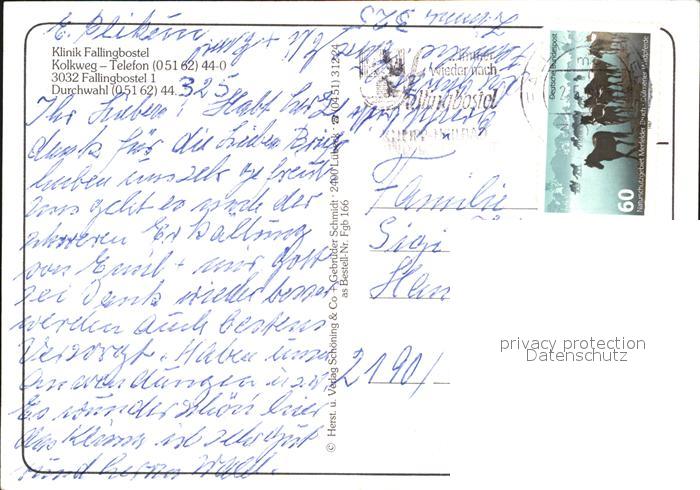 Klinik Fallingbostel
Kolkweg – Telefon (0 51 62) 44-0
3032 Fallingbostel 1
Durchwahl (0 51 62) 44. 325
Ihr Lieben! Habt
dank für die Lieben
haben uns sehr gefreut
uns geht es nach der
schweren Erkältung
von Emil + mir Gott
sei Dank wieder besser
werden auch bestens
Versorgt. Haben unsere
Anwendungen u.s.w.
Es wunderschön hier
das Klima ist sehr gut
rund herum Wald.
© Herst. u. Verlag Schöning & Co + Gebrüder Schmidt · 2400 Lübeck · ☎ (0451) 31204
as Bestell-Nr. Fgb 166
Zimmer 325
immer
wieder nach
Fallingbostel
Deutsche Bundespost
60
Naturschutzgebiet Merfelder Bruch · Dülmener Wildpferde
Familie
Sigi
2190/
privacy protection
Datenschutz